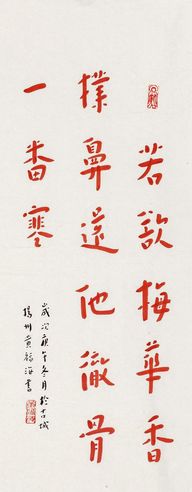 若欲梅華香
撲鼻還他徹骨
一番寒
歲次庚午冬月於古城
揚州黃福海書